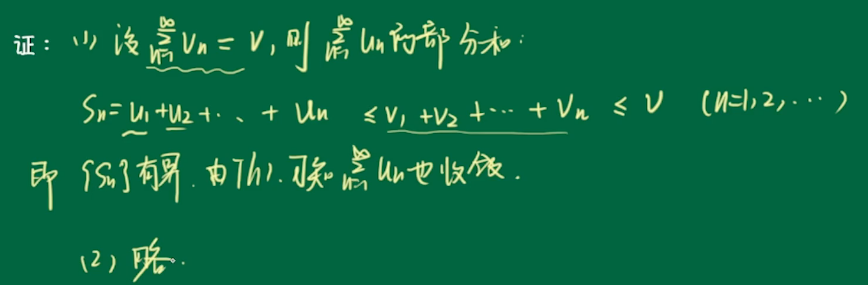 证：(1) 设 $\sum_{n=1}^{\infty} v_n = v$, 则 $\sum_{n=1}^{\infty} u_n$ 的部分和：
$S_n = u_1 + u_2 + \cdots + u_n \leq v_1 + v_2 + \cdots + v_n \leq v \quad (n=1,2,\cdots)$
即 $\{S_n\}$ 有界. 由Th1. 可知 $\sum_{n=1}^{\infty} u_n$ 也收敛.
(2) 略.